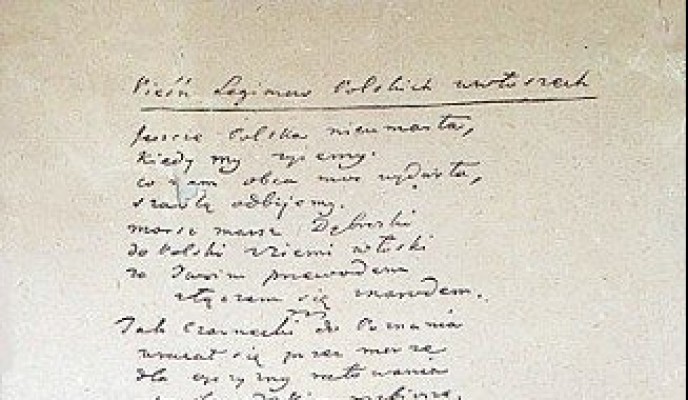 Pieśń Legionów Polskich we Włoszech
Jeszcze Polska nieumarła,
kiedy my żyiemy.
co nam obca moc wydarła,
szablą odbijemy.
marsz marsz Dąbroski
do Polski z ziemi włoski
za Twoim przewodem
złączem się z narodem.
Jak Czarnecki do Poznania
wracał się przez morze
dla oyczyzny ratowania